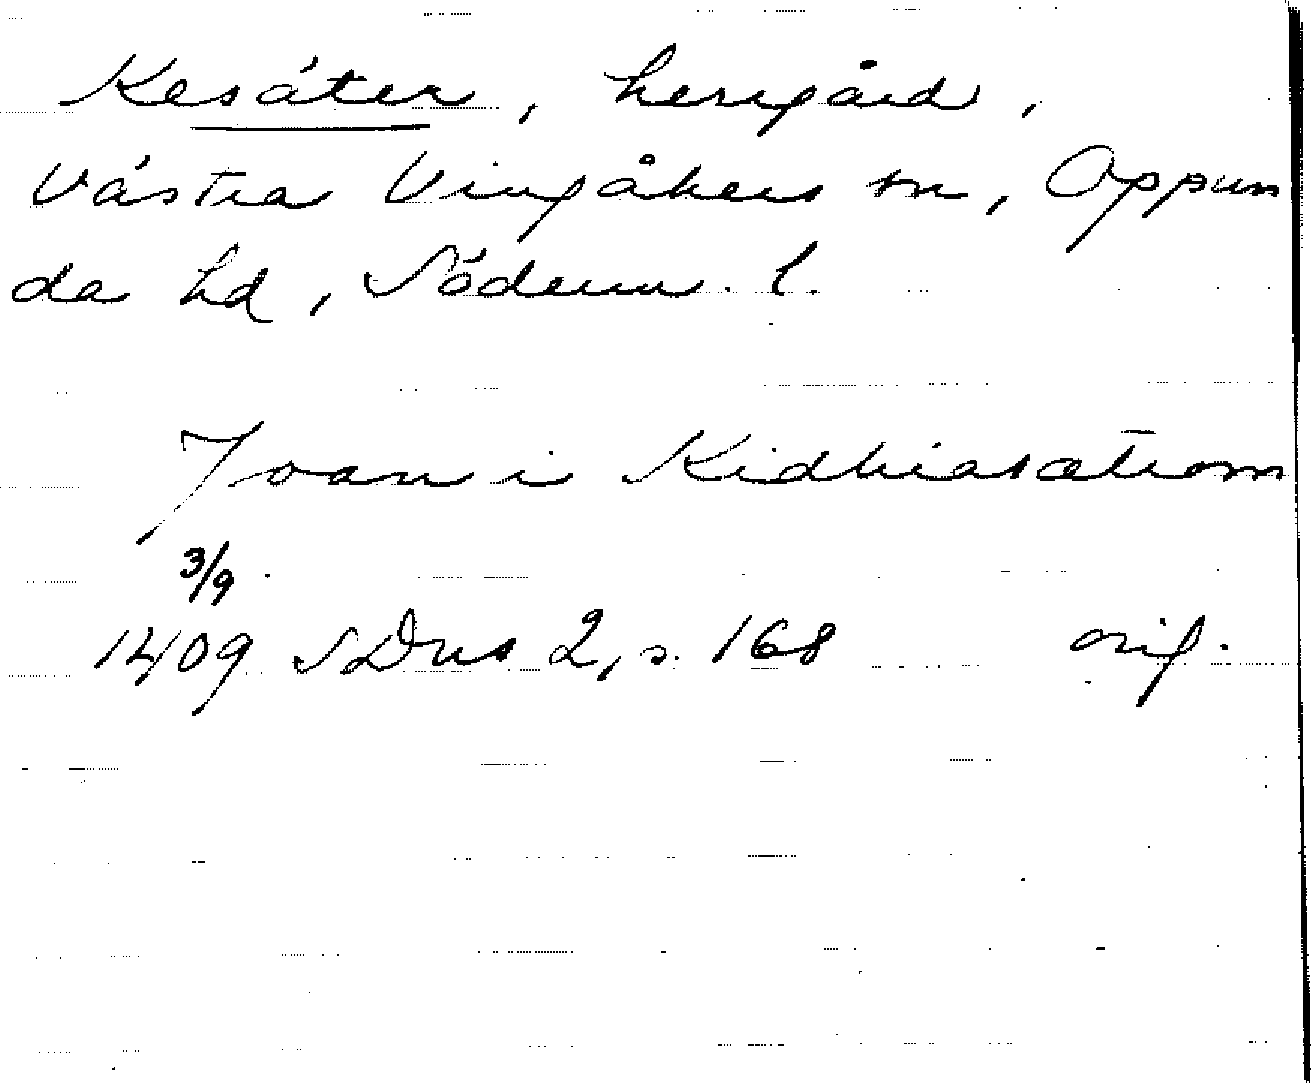 Kesäter, herrgård,
Västra Vingåkers sn, Oppun
da hd, Söderm. l.
Joan i Kidhiasætrom
3/9
1409 SDns 2, s. 168 orig.